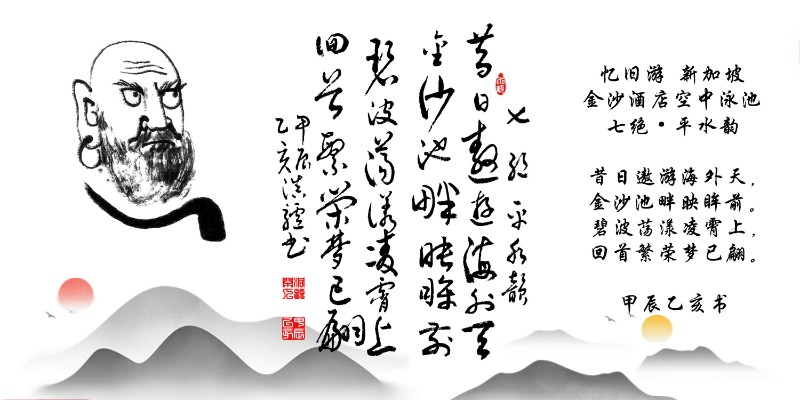 七绝 平水韵
昔日遨遊海外天
金沙池畔映眸前
碧波荡漾凌霄上
回首繁荣梦已翩
甲辰
乙亥滇驢书
忆旧游 新加坡
金沙酒店空中泳池
七绝•平水韵
昔日遨游海外天，
金沙池畔映眸前。
碧波荡漾凌霄上，
回首繁荣梦已翩。
甲辰乙亥书